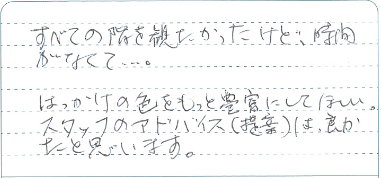 すべての階を観たかったけど、時間
がなくて…。
はっかけの色をもっと豊富にしてほしい。
スタッフのアドバイス(提案)は、良か
たと思います。